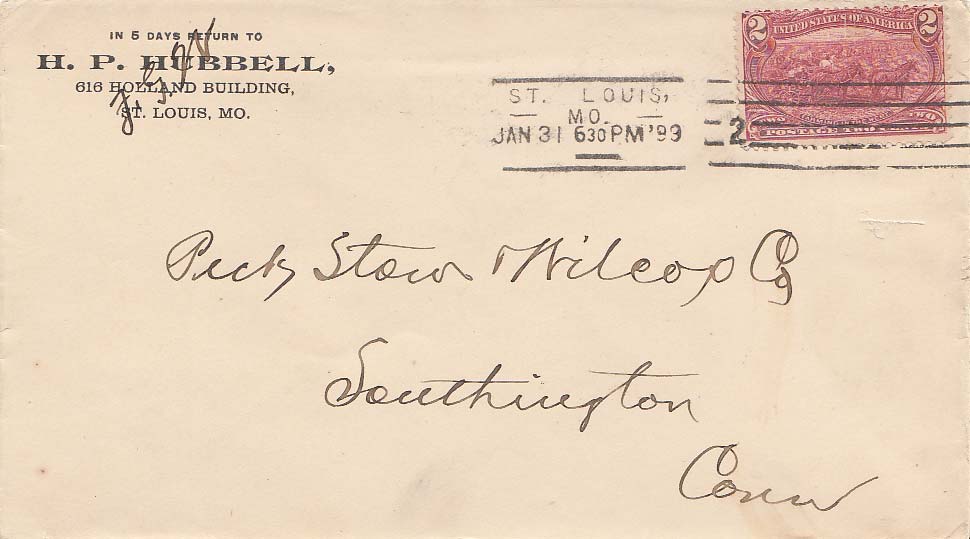 IN 5 DAYS RETURN TO
H. P. HUBBELL,
616 HOLLAND BUILDING,
ST. LOUIS, MO.
ST. LOUIS,
MO.
JAN 31 630PM '99
2
2 UNITED STATES OF AMERICA 2
TWO POSTAGE TWO CENTS TWO
Peck Stow Wilcox Co
Southington
Conn